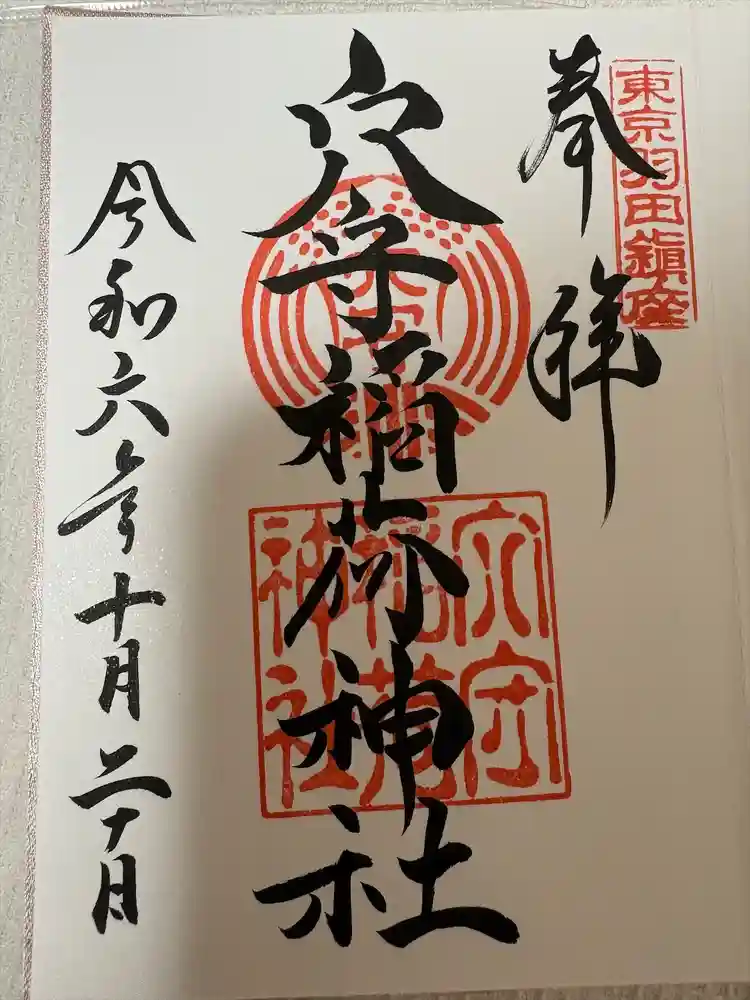 東京羽田鎭座
奉拝
穴守稲荷神社
穴守
稲荷
神社
令和六年十月二十日